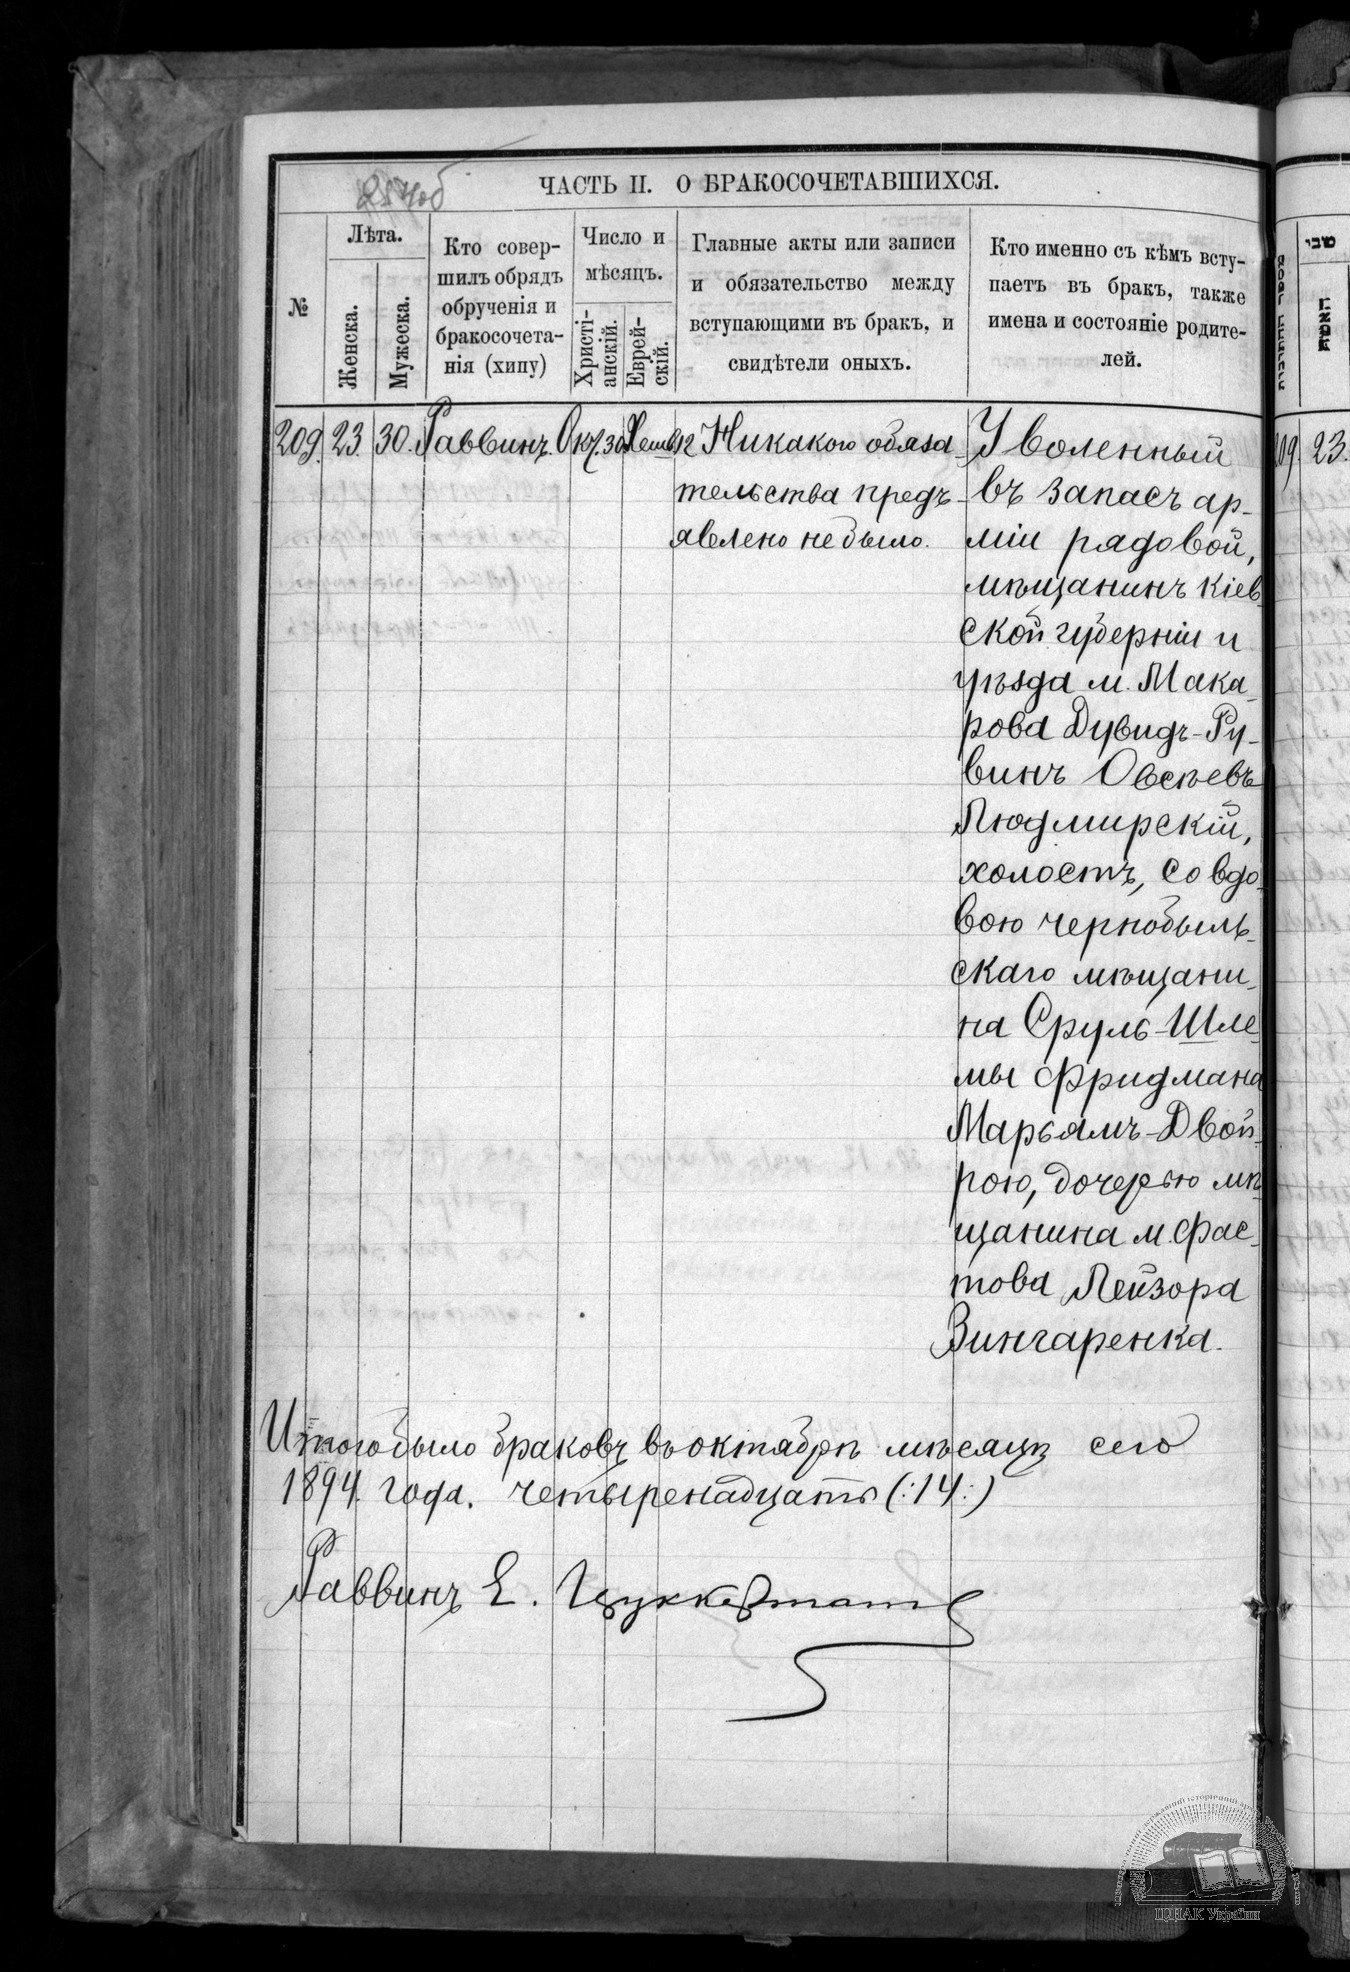 257об
ЧАСТЬ II. О БРАКОСОЧЕТАВШИХСЯ.
№
Лѣта.
Женска.
Мужеска.
Кто совер-
шилъ обрядъ
обрученія и
бракосочета-
нія (хипу)
Число и
мѣсяцъ.
Христі-
анскій.
Еврей-
скій.
Главные акты или записи
и обязательство между
вступающими въ бракъ, и
свидѣтели оныхъ.
Кто именно съ кѣмъ всту-
паетъ въ бракъ, также
имена и состояніе родите-
лей.
209. 23. 30. Раввинъ. Окт. 30
Никакого обяза-
тельства предъ-
явлено не было.
Уволенный
въ запасъ ар-
міи рядовой,
мѣщанинъ Кіев-
ской губерніи и
уѣзда м. Мака-
рова Дувидъ-Ру-
винъ Овсѣевъ
Людмирскій,
холостъ, со вдо-
вою чернобыль-
скаго мѣщани-
на Сруль-Шле-
мы Фридмана
Марьямъ-Двой-
рою, дочерью мѣ-
щанина м. Фас-
това Лейзора
Зингаренка.
Итого было браковъ въ октябрѣ мѣсяцѣ сего
1894. года. четыренадцать (:14:)
Раввинъ Е. Цуккерман
שני
האשה
209. 23.
ЦДІАК України